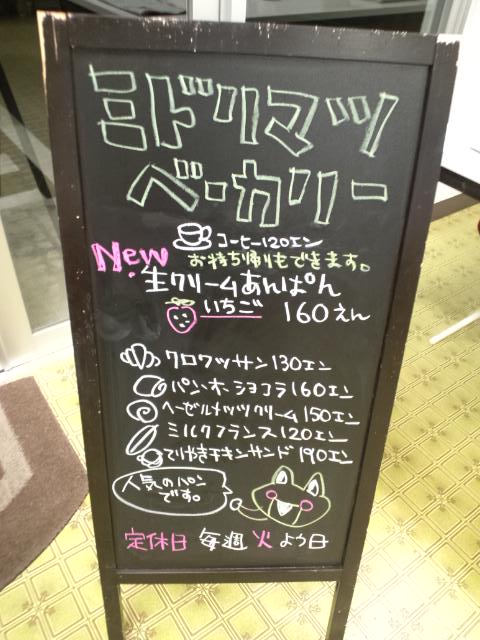 ミドリマツ
ベーカリー
コーヒー120エン
New お持ち帰りもできます。
生クリームあんぱん
いちご 160えん
クロワッサン130エン
パン・オ・ショコラ160エン
ヘーゼルナッツクリーム150エン
ミルクフランス120エン
てりやきチキンサンド190エン
人気のパン
です。
定休日 毎週 火 よう日